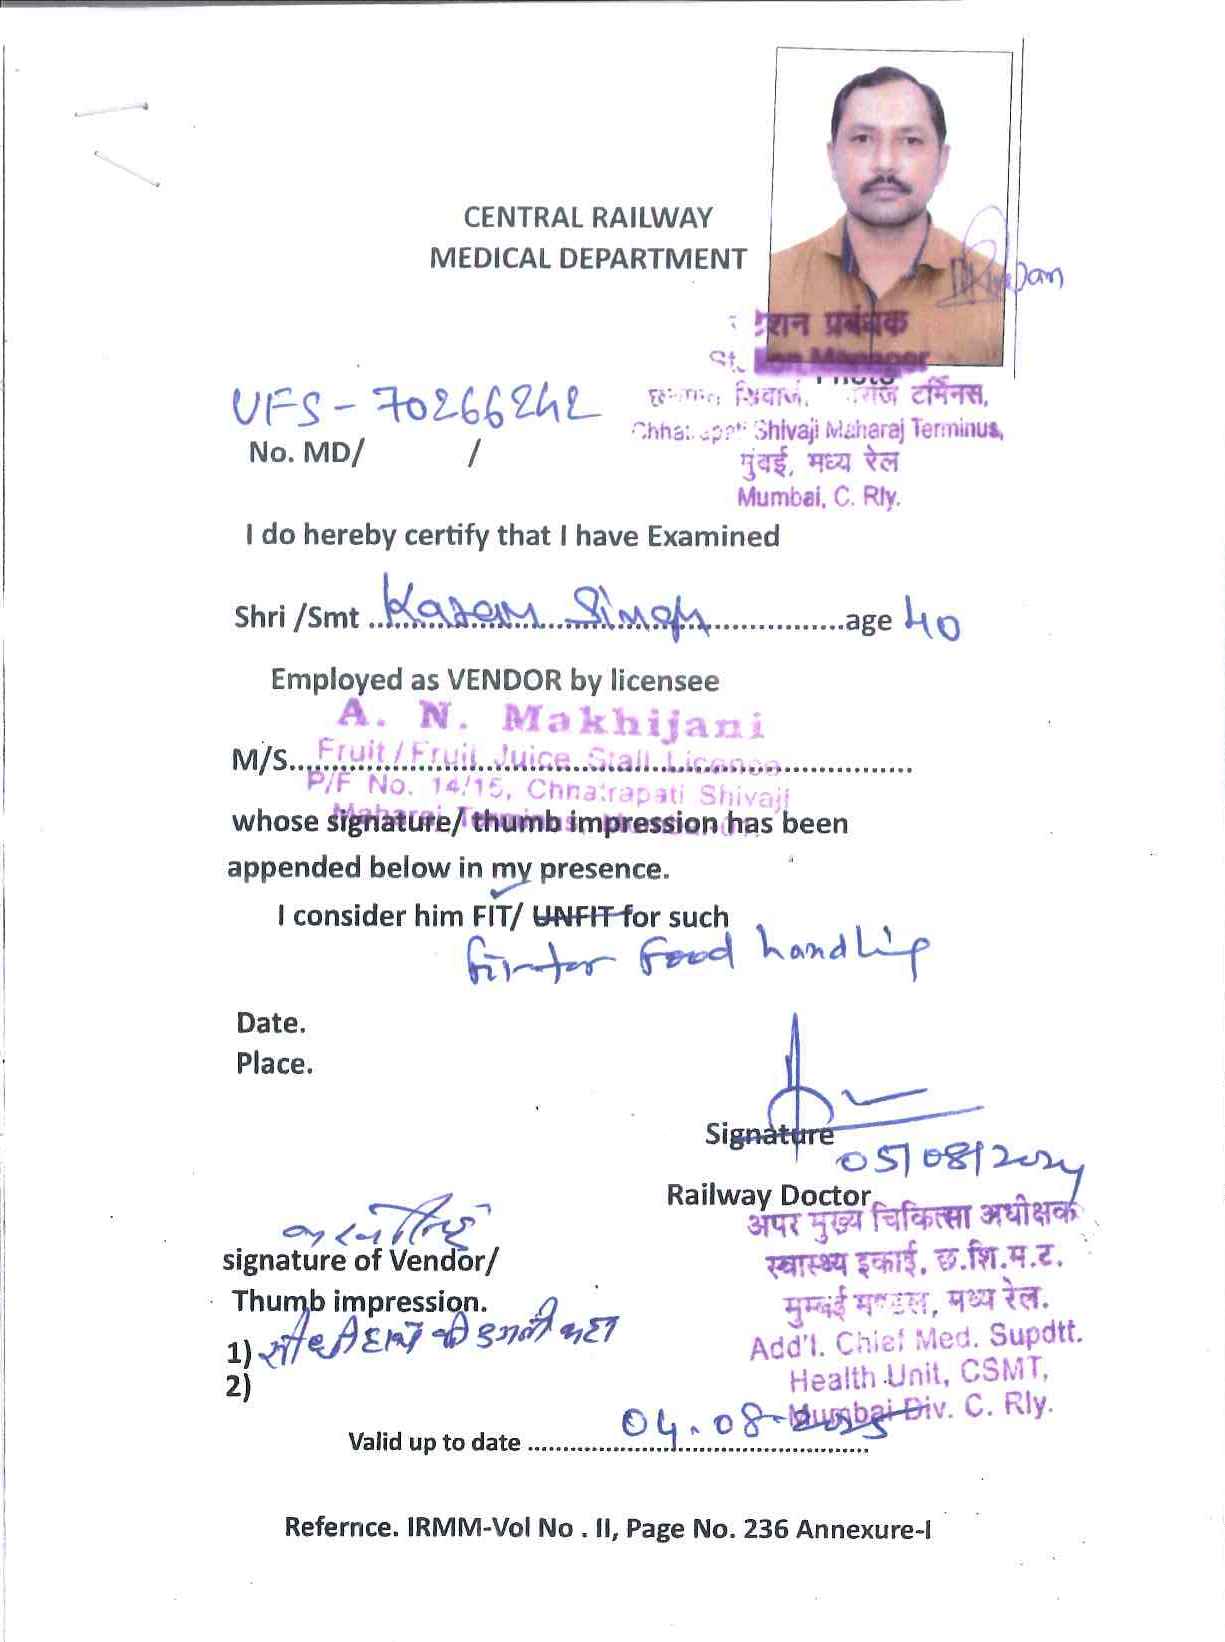 CENTRAL RAILWAY
MEDICAL DEPARTMENT
शन प्रबंधक
Manager
Photo
टर्मिनस,
Shivaji Maharaj Terminus,
मुंबई, मध्य रेल
Mumbai, C. Rly.
UFS-70266242
No. MD/ /
I do hereby certify that I have Examined
Shri /Smt Karan Singh age 40
Employed as VENDOR by licensee
A. N. Makhijani
M/S. Fruit / Fruit Juice Stall Licence
P/F No. 14/15, Chhatrapati Shivaji
Maharaj Terminus,
whose signature/ thumb impression has been
appended below in my presence.
I consider him FIT/ UNFIT for such
fit for Food handling
Date.
Place.
Signature
05/08/2024
Railway Doctor
अपर मुख्य चिकित्सा अधीक्षक
स्वास्थ्य इकाई, छ.शि.म.ट.
मुम्बई मण्डल, मध्य रेल.
Add'l. Chief Med. Supdtt.
Health Unit, CSMT,
Mumbai Div. C. Rly.
signature of Vendor/
Thumb impression.
1)
2)
Valid up to date 04.08.2025
Refernce. IRMM-Vol No . II, Page No. 236 Annexure-I